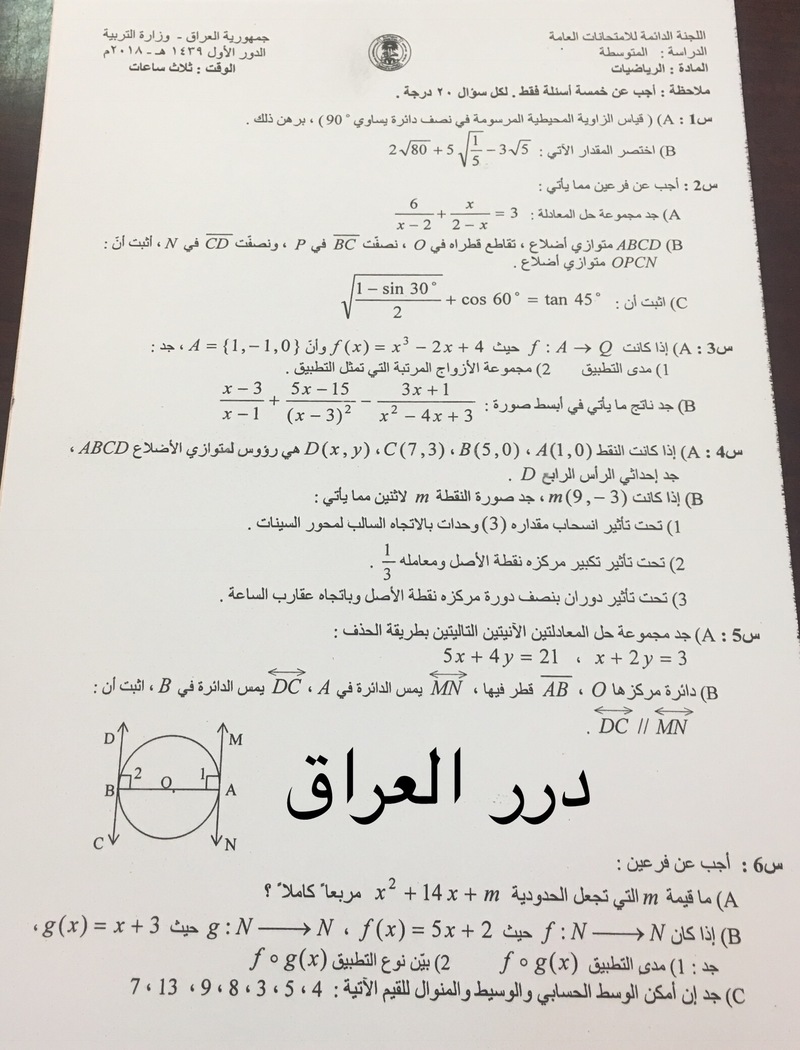 اللجنة الدائمة للامتحانات العامة
الدراسة : المتوسطة
المادة : الرياضيات
جمهورية العراق - وزارة التربية
الدور الأول ١٤٣٩ هـ - ٢٠١٨م
الوقت : ثلاث ساعات
ملاحظة : أجب عن خمسة أسئلة فقط . لكل سؤال ٢٠ درجة .
س1 : A) ( قياس الزاوية المحيطية المرسومة في نصف دائرة يساوي 90° ) ، برهن ذلك .
B) اختصر المقدار الآتي : 2√80 + 5√(1/5) − 3√5
س2 : أجب عن فرعين مما يأتي :
A) جد مجموعة حل المعادلة : 6/(x − 2) + x/(2 − x) = 3
B) ABCD متوازي أضلاع ، تقاطع قطراه في O ، نصفّت BC في P ، ونصفّت CD في N ، أثبت أنّ :
OPCN متوازي أضلاع .
C) اثبت أن : √((1 − sin 30°)/2) + cos 60° = tan 45°
س3 : A) إذا كانت f : A → Q حيث f(x) = x³ − 2x + 4 وأنّ A = {1, −1, 0} ، جد :
1) مدى التطبيق 2) مجموعة الأزواج المرتبة التي تمثل التطبيق .
B) جد ناتج ما يأتي في أبسط صورة : (x − 3)/(x − 1) + (5x − 15)/(x − 3)² − (3x + 1)/(x² − 4x + 3)
س4 : A) إذا كانت النقط A(1,0) ، B(5,0) ، C(7,3) ، D(x,y) هي رؤوس لمتوازي الأضلاع ABCD ،
جد إحداثي الرأس الرابع D .
B) إذا كانت m(9,−3) ، جد صورة النقطة m لاثنين مما يأتي :
1) تحت تأثير انسحاب مقداره (3) وحدات بالاتجاه السالب لمحور السينات .
2) تحت تأثير تكبير مركزه نقطة الأصل ومعامله 1/3 .
3) تحت تأثير دوران بنصف دورة مركزه نقطة الأصل وباتجاه عقارب الساعة .
س5 : A) جد مجموعة حل المعادلتين الآنيتين التاليتين بطريقة الحذف :
5x + 4y = 21 ، x + 2y = 3
B) دائرة مركزها O ، AB قطر فيها ، MN يمس الدائرة في A ، DC يمس الدائرة في B ، اثبت أن :
DC // MN .
D M
2 1
B O A
C N
درر العراق
س6 : أجب عن فرعين :
A) ما قيمة m التي تجعل الحدودية x² + 14x + m مربعاً كاملاً ؟
B) إذا كان f : N ⟶ N حيث f(x) = 5x + 2 ، g : N ⟶ N حيث g(x) = x + 3 ،
جد : 1) مدى التطبيق f ∘ g(x) 2) بيّن نوع التطبيق f ∘ g(x)
C) جد إن أمكن الوسط الحسابي والوسيط والمنوال للقيم الآتية : 4 ، 5 ، 3 ، 8 ، 9 ، 13 ، 7